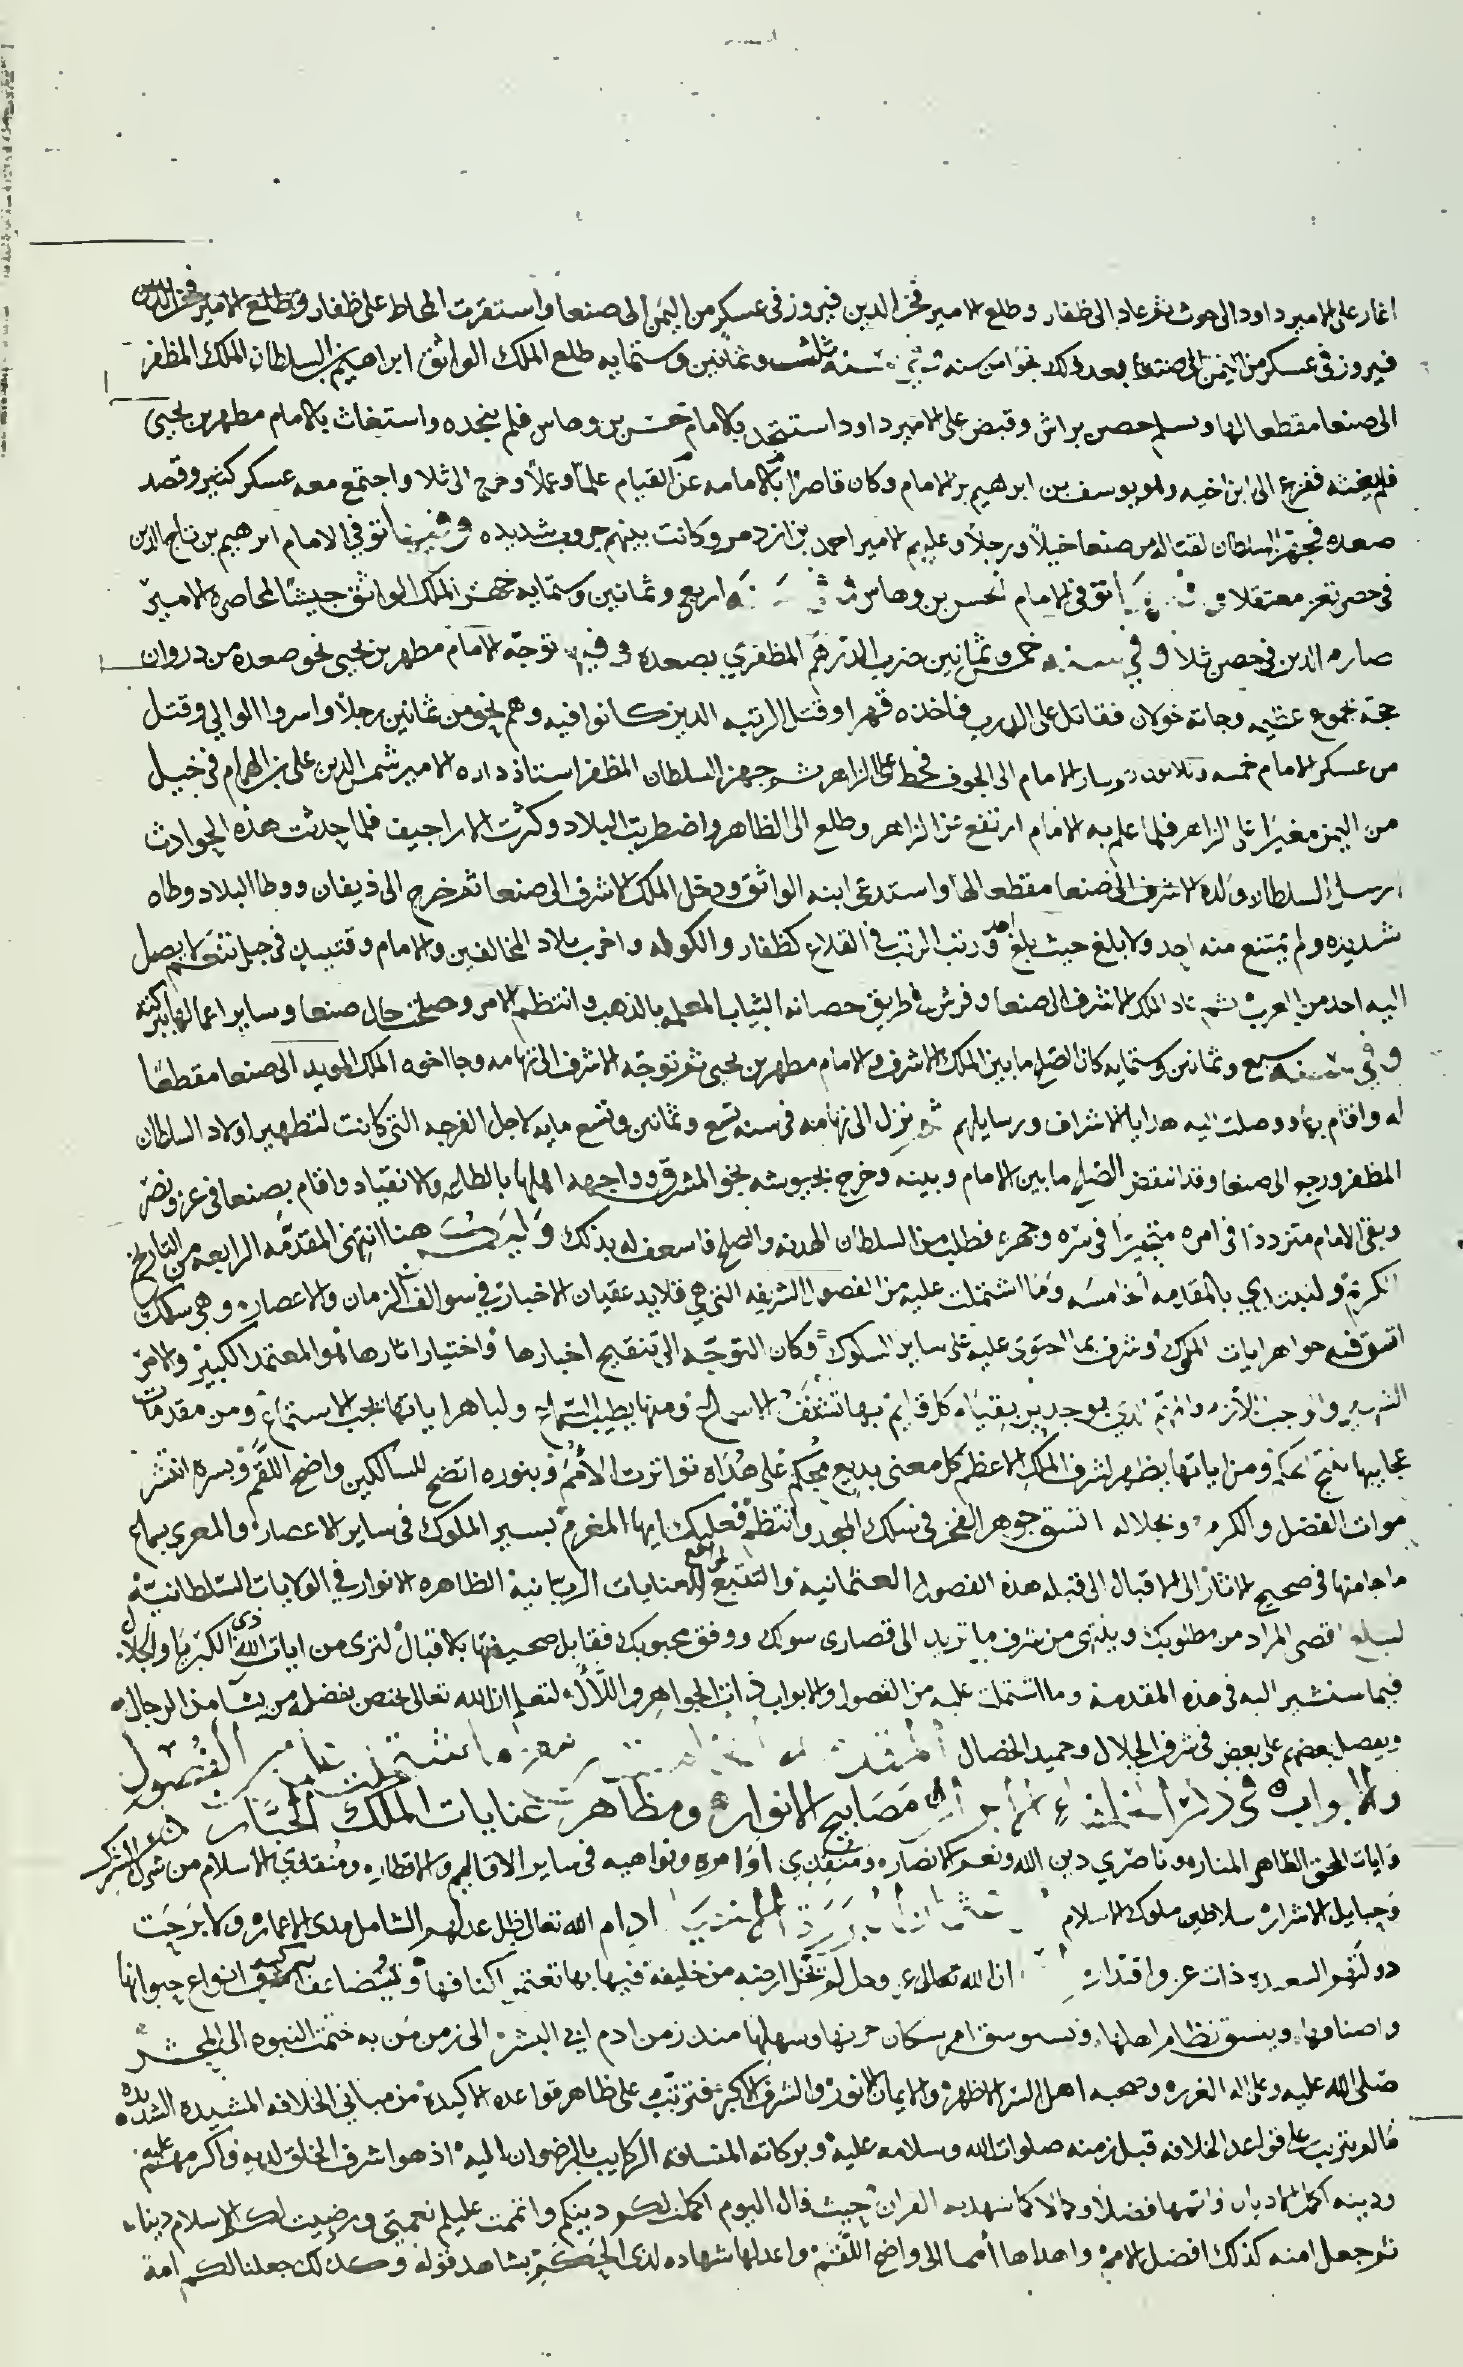 اغار على الامير داود الى حوث ثم عاد الى ظفار وطلع الامير فخر الدين فيروز فى عسكر من اليمن الى صنعا واستقرت المحاط على ظفار وطلع الامير فخر الدين
فيروز فى عسكر من اليمن الى صنعا وبعد ذلك نحوا من سنه سنه ثلث وثمانين وستمايه طلع الملك الواثق ابراهيم بن السلطان الملك المظفر
الى صنعا مقطعا لها وتسلم حصن براش وقبض على الامير داود استنجد بالامام حسن بن وهاس فلم ينجده واستغاث بالامام مطهر بن يحيى
فلم يغثه ففزع الى ابن اخيه وهو يوسف بن ابراهيم بن الامام وكان قاصرا بالامامه عن القيام علما وعملا وخرج الى ثلا واجتمع معه عسكر كثير وقصد
صعده فجهز السلطان لقتاله من صنعا خيلا ورجلا وعليهم الامير احمد بن ازدمر وكانت بينهم حروب شديده وفيها توفي الامام ابرهيم بن تاج الدين
فى حصن تعز معتقلا توفى الامام الحسن بن وهاس اربع وثمانين وستمايه جهز الملك الواثق جيشا لمحاصرة الامير
صارم الدين فى حصن ثلا وفي سنه خمس وثمانين ضرب الدرهم المظفري بصعده وفيها توجه الامام مطهر بن يحيى نحو صعده من دروان
حجه بجموع عظيمه وجاته خولان فقاتل على الدرب فاخذه قهرا وقتل الرتبه الذين كانوا فيه وهم نحو من ثمانين رجلا واسروا الوالي وقتل
من عسكر الامام خمسه وثلاثون وسار الامام الى الجوف فحط على الزاهر ثم جهز السلطان المظفر استاذ داره الامير شمس الدين على بن الهمام فى خيل
من اليمن مغيرا على الزاهر فلما علم به الامام ارتفع عن الزاهر وطلع الى الظاهر واضطربت البلاد وكثرت الاراجيف فلما حدثت هذه الحوادث
ارسل السلطان ولده الاشرف الى صنعا مقطعا لها واستدعى ابنه الواثق ودخل الملك الاشرف الى صنعا ثم خرج الى ذيفان ووطا البلاد وطاه
شديده ولم يمتنع منه احد ولا بلغ حيث بلغ احد ورتب الرتب في القلاع كظفار والكوله واخرب بلاد المخالفين والامام وقتيبه فى جبل تنعم لا يصل
اليه احد من العرب ثم عاد الملك الاشرف الى صنعا وفرش فى طريق حصانه الثياب المعلمه بالذهب وانتظم الامر وصلحت حال صنعا وساير اعمالها ببركته
وفي سنه سبع وثمانين وستمايه كان الصلح ما بين الملك الاشرف والامام مطهر بن يحيى ثم توجه الاشرف الى تهامه وجا اخوه الملك المويد الى صنعا مقطعا
له واقام بها ووصلت اليه هدايا الاشراف ورسايلهم ثم نزل الى تهامه فى سنه تسع وثمانين وتسع مايه لاجل الفرجه التي كانت لتطهير اولاد السلطان
المظفر ورجع الى صنعا وقد انتقض الصلح ما بين الامام وبينه وخرج بجيوشه نحو المشرق وواجهه اهلها بالطاعه والانقياد واقام بصنعا فى عز ونصر
وبقى الامام مترددا فى امره متحيرا فى سره وجهره فطلب من السلطان الهدنه والصلح فاسعف له بذلك هنا انتهى المقدمه الرابعه من التاريخ
ولنبتدي بالمقدمه الخامسه وما اشتملت عليه من الفصول الشريفه التى هي قلايد عقيان الاخبار في سوالف الزمان والاعصار وهي سلك
اتسق فيه جواهر ايات الملوك وشرف بما احتوى عليه على ساير السلوك وكان التوجه الى تنقيح اخبارها واختيار اثارها هو المعتمد الكبير والامر
بها تشنف الاسماع ومنها يطيب السماع ولباهر اياتها يجب الاستماع ومن مقدمات
عجايبها ومن اياتها يظهر لشرف الملك الاعظم كل معنى بديع محكم على هداه تواترت الامم وبنوره اتضح للسالكين واضح اللقم وبسره انتشر
موات الفضل والكرم وبجلاله اتسق جوهر الفخر فى سلك المجد وانتظم فعليك ايها المغرم بسير الملوك فى ساير الاعصار والمغري بسماع
ما جا منها فى صحيح الاثار الى الاقبال الى قبله هذه الفصول العثمانيه والتتبع لمواقع العنايات الربانية الظاهره الانوار في الولايات السلطانية
لتبلغ اقصى المراد من مطلوبك وينتهى من شرف ما تريد الى قصارى سولك ووفق محبوبك فقابل صحيفتها بالاقبال لترى من ايات الله ذى الكبريا والجلال
فيما سنشير اليه فى هذه المقدمة وما اشتملت عليه من الفصول والابواب ذات الجواهر واللآل لتعلم ان الله تعالى يختص بفضله من يشا من الرجال
ويفضل بعضهم على بعض فى شرف الجلال وحميد الخصال المقدمة الخامسة وما اشتملت عليه من الفصول
والابواب في ذكر مصابيح الانوار ومظاهر عنايات الملك الجبار
وايات الحق الظاهر المناره وناصري دين الله ونعم الانصاره ومنفذي اوامره ونواهيه فى ساير الاقاليم والاقطاره ومنقذي الاسلام من شرك الشرك
وحبايل الاشراره سلاطين ملوك الاسلام ادام الله تعالى ظل عدلهم الشامل مدى الاعماره ولا برحت
دولتهم السعيده ذات عز واقتدار ان الله تعالى عز وجل لم يخل ارضه من خليفة فيها بها تعتمر اكنافها وتتضاعف انواع حيواناتها
واصنافها وينسق نظام اهلها ويستوسق امر سكان حزنها وسهلها منذ زمن ادم ابي البشر الى زمن من به ختمت النبوه الى المحشر
صلى الله عليه وعلى اله الغرر وصحبه اهل السر الاظهر والايمان الانور والشرف الاكبر فترتب على ظاهر قواعده الاكيدة من مباني الخلافه المشيده الشديده
ما لم يترتب على قواعد الخلافه قبل زمنه صلوات الله وسلامه عليه وبركاته المنساقه الركايب بالرضوان اليه اذ هو اشرف الخلق لديه واكرمهم عليه
ودينه اكمل الاديان واتمها فضلا وكمالا كما شهد به القران حيث قال اليوم اكملت لكم دينكم واتممت عليكم نعمتي ورضيت لكم الاسلام دينا
ثم جعل امته كذلك افضل الامم واهداها امما الى واضح اللقم واعدلها شهاده لدى الحكم بشاهد قوله وكذلك جعلنا لكم امة